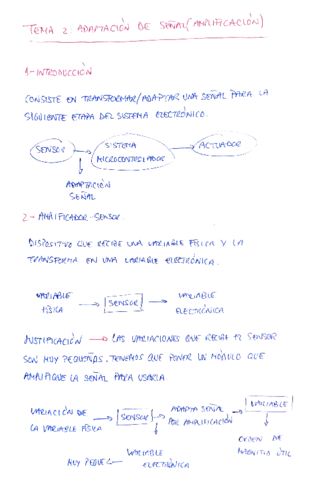 TEMA 2: ADAPTACIÓN DE SEÑAL (AMPLIFICACIÓN)
1-INTRODUCCIÓN
CONSISTE EN TRANSFORMAR/ADAPTAR UNA SEÑAL PARA LA
SIGUIENTE ETAPA DEL SISTEMA ELECTRÓNICO.
SENSOR → SISTEMA MICROCONTROLADOR → ACTUADOR
ADAPTACIÓN
SEÑAL
2- AMPLIFICADOR-SENSOR
DISPOSITIVO QUE RECIBE UNA VARIABLE FÍSICA Y LA
TRANSFORMA EN UNA VARIABLE ELECTRÓNICA.
VARIABLE FÍSICA → SENSOR → VARIABLE ELECTRÓNICA
JUSTIFICACIÓN → LAS VARIACIONES QUE RECIBE EL SENSOR
SON MUY PEQUEÑAS. TENEMOS QUE PONER UN MÓDULO QUE
AMPLIFIQUE LA SEÑAL PARA USARLA
VARIACIÓN DE LA VARIABLE FÍSICA → SENSOR → ADAPTA SEÑAL POR AMPLIFICACIÓN → VARIABLE
ORDEN DE
ÚTIL
MUY PEQUE ← VARIABLE ELECTRÓNICA